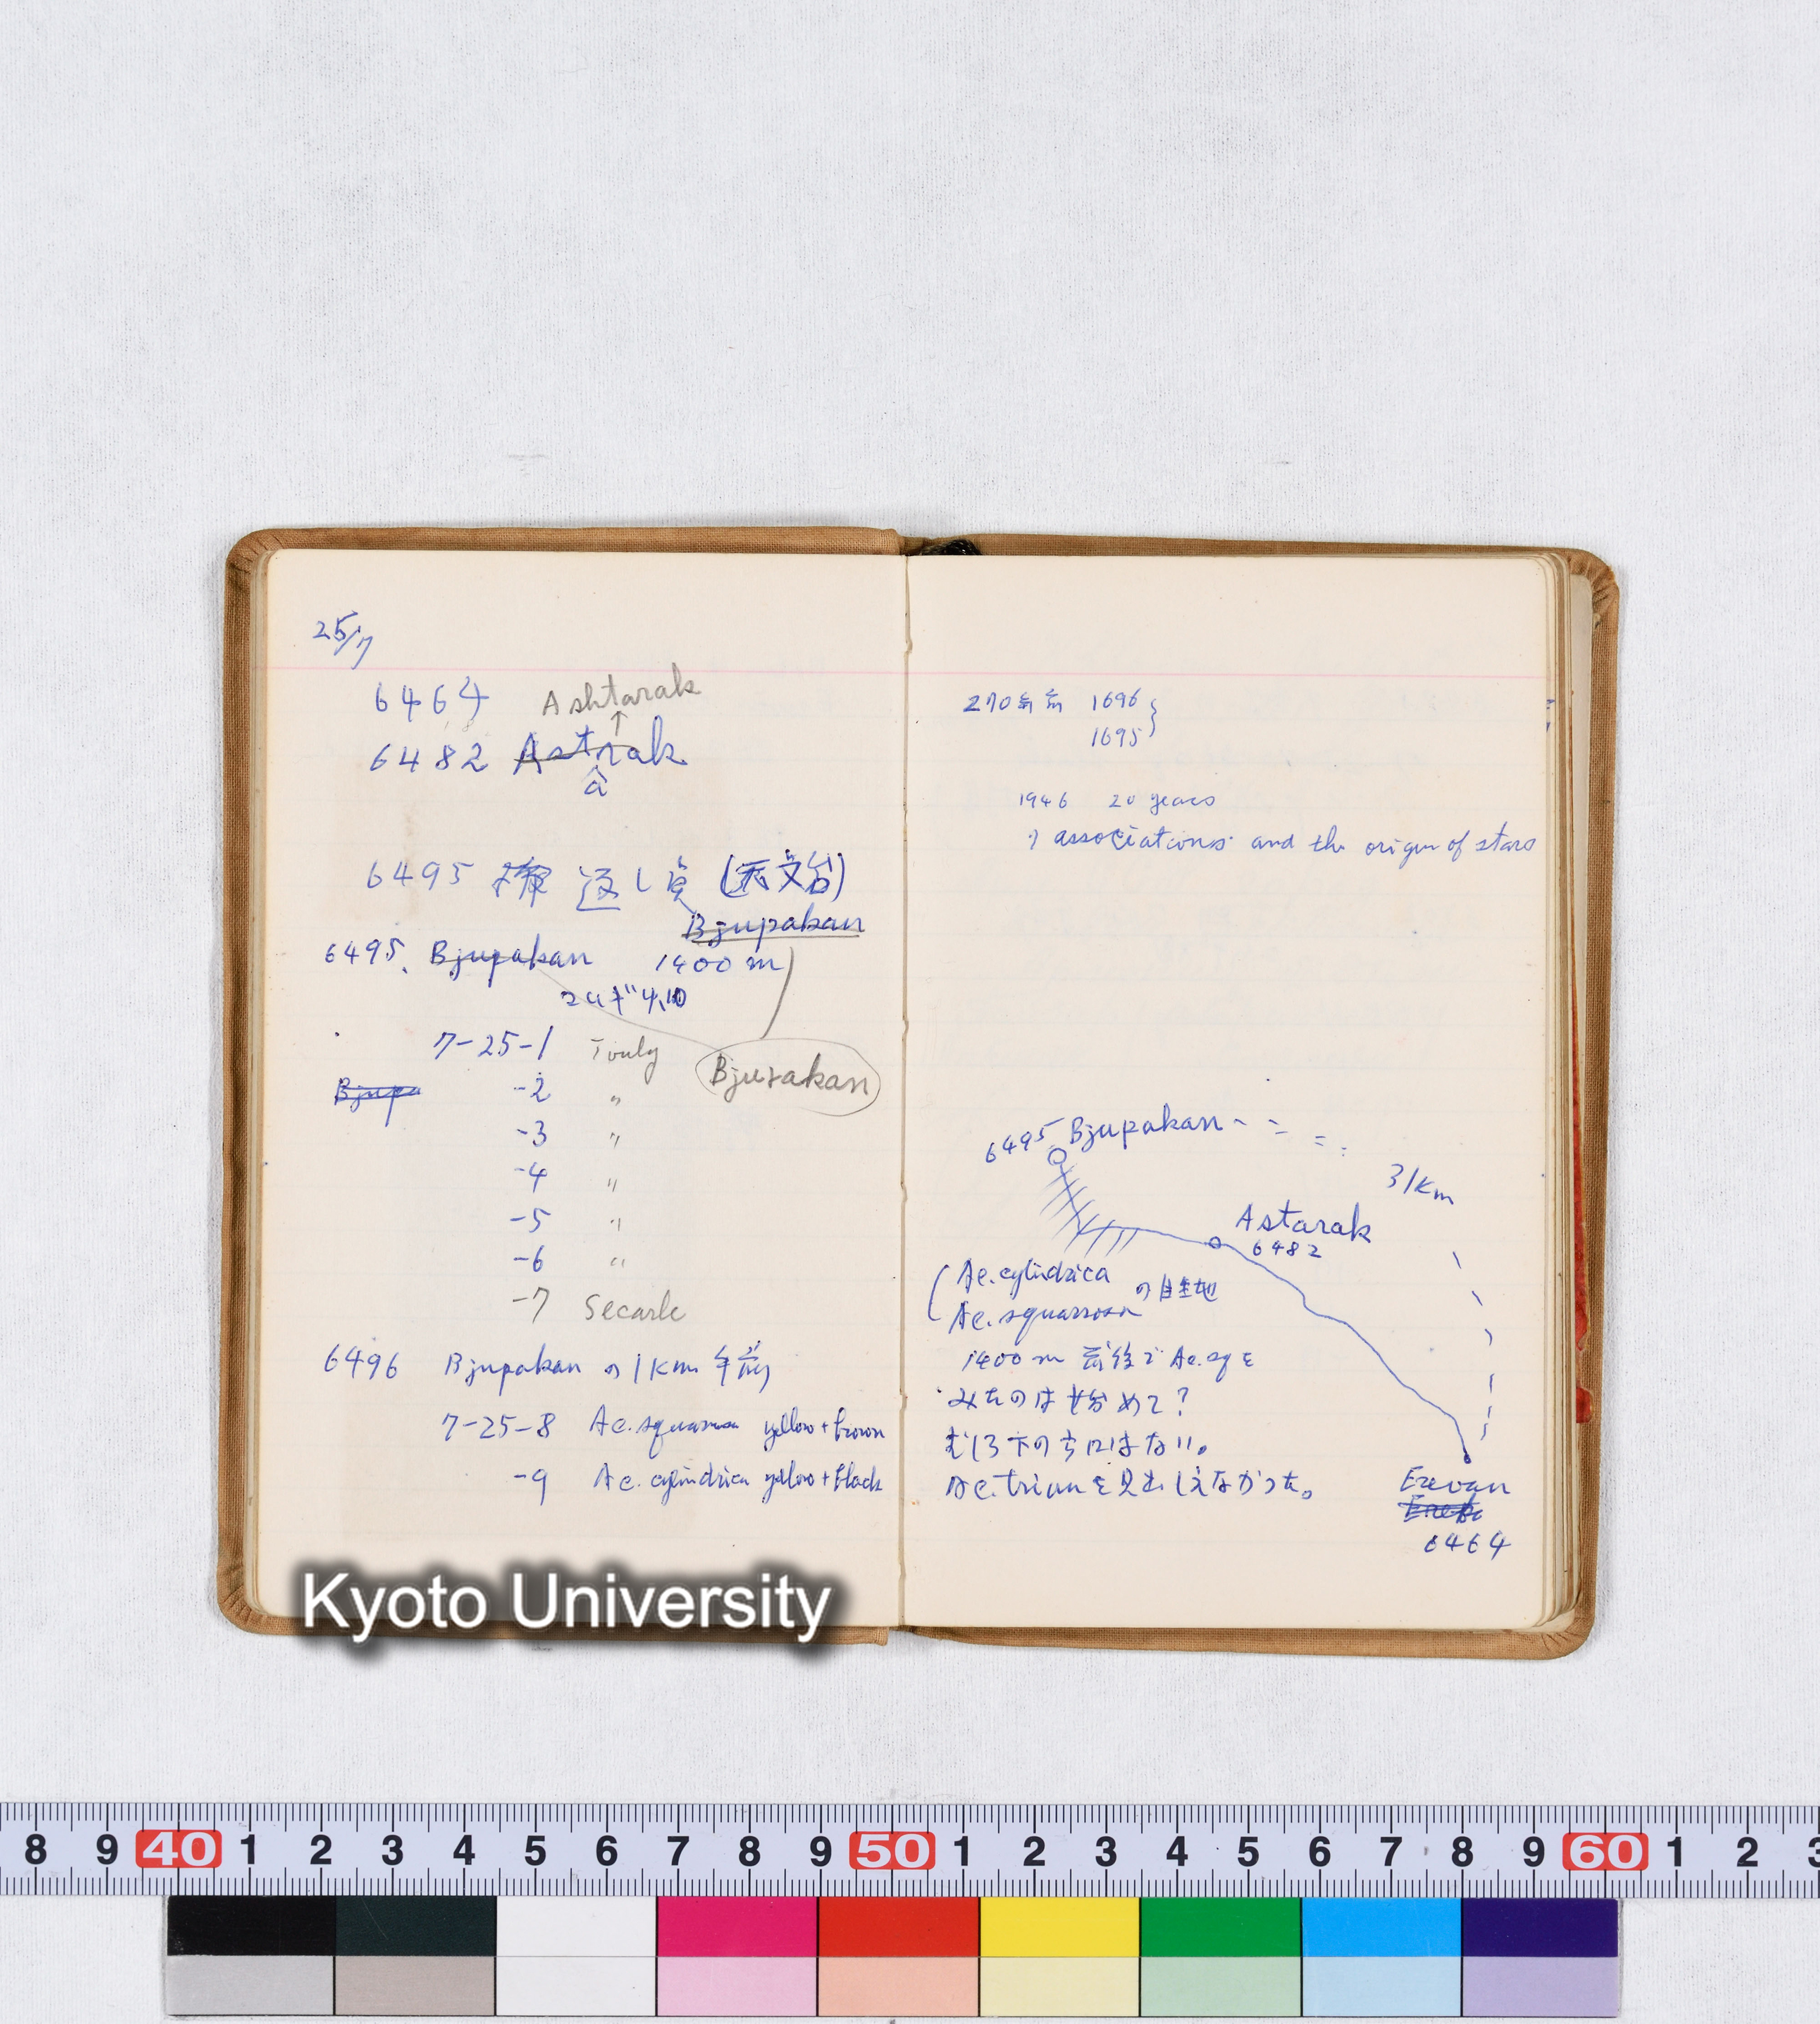 25/7
6464
Ashtarak
↑
6482 Astrak
a
6495 折返し点 (天文台)
Bjupakan
6495. Bjupakan 1400 m
コムギ 4,10
7-25-1 Touly
Bjurakan
Bjupa -2 〃
-3 〃
-4 〃
-5 〃
-6 〃
-7 Secarle
6496 Bjupakan の 1 Km 手前
7-25-8 Ae. squarrosa yellow + brown
-9 Ae. cylindrica yellow + black
270年前 1696
1695
1946 20 years
1) associations and the origin of stars
6495 Bjupakan
31Km
Astarak
6482
Ae. cylindrica
Ae. squarrosa の自生地
1400 m 前後で Ae. sq を
みたのは始めて?
むしろ下の方にはない。
Ae. triun を見出しえなかった。
Erevan
6464
Kyoto University
8 9 40 1 2 3 4 5 6 7 8 9 50 1 2 3 4 5 6 7 8 9 60 1 2 3